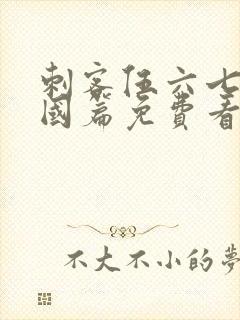 刺客伍六七
國篇免費看
不大不小的夢